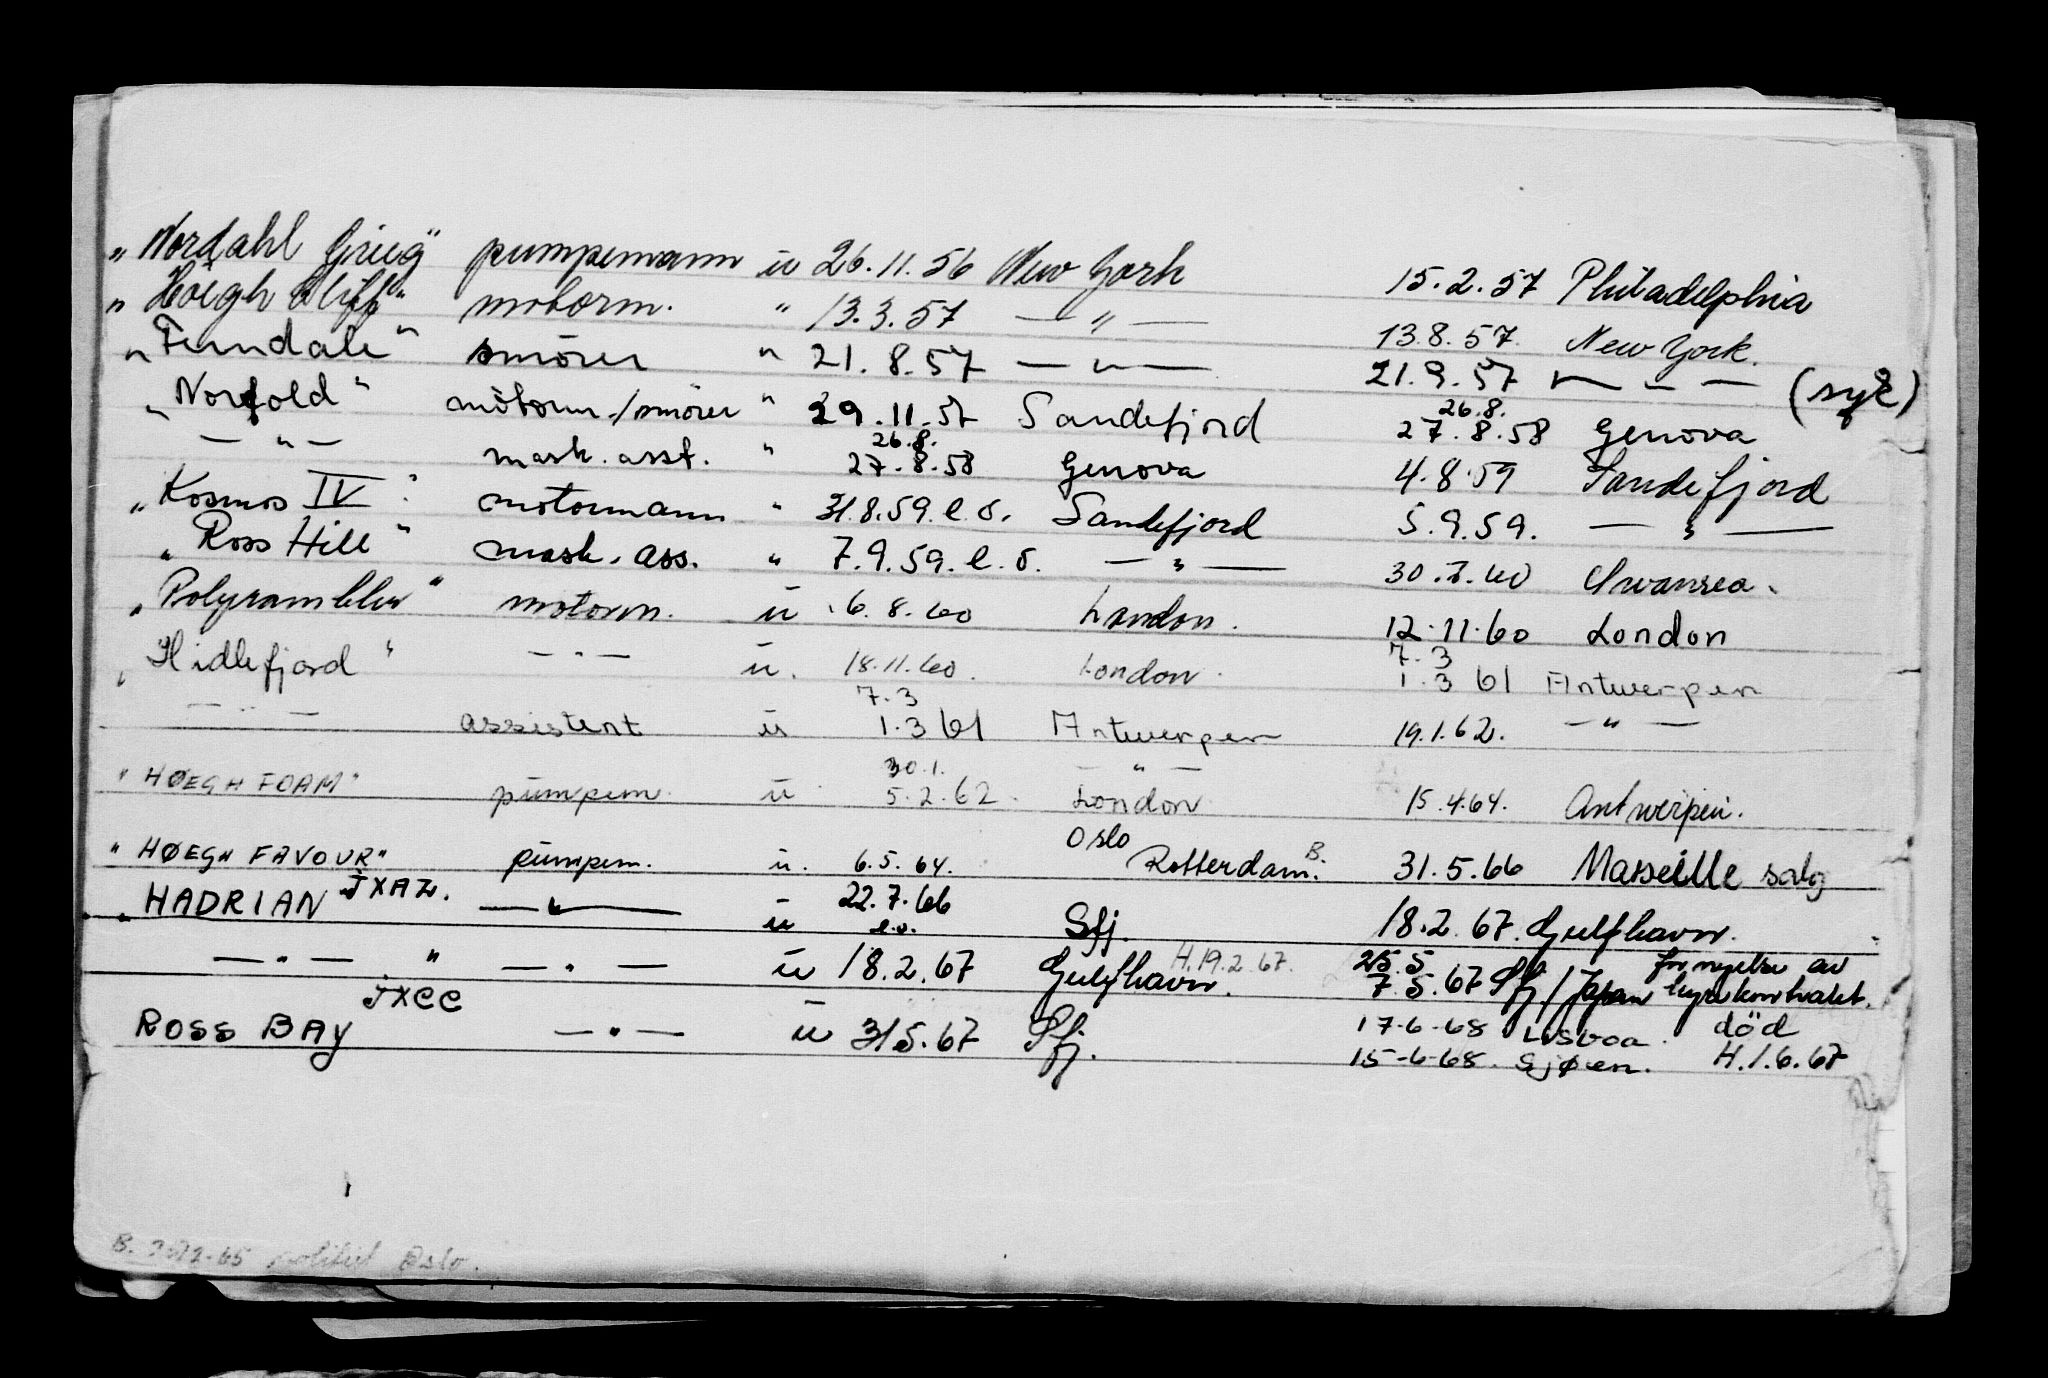 "Nordahl Grieg" pumpemann u 26.11.56 New York 15.2.57 Philadelphia
"Höegh Cliff" motorm. " 13.3.57 — " — 13.8.57. New York.
"Ferndale" smörer " 21.8.57 — " — 21.9.57 — " — (syk)
"Norfold" motorm./smörer " 29.11.57 Sandefjord 26.8. 27.8.58 Genova
— " — mask. asst. " 26.8. 27.8.58 Genova 4.8.59 Sandefjord
"Kosmos IV" motormann " 31.8.59. e.o. Sandefjord 5.9.59. — " —
"Ross Hill" mask. ass. " 7.9.59. e.o. — " — 30.7.60 Swansea.
"Polyrambler" motorm. u 6.8.60 London. 12.11.60 London
"Hidlefjord" — " — u. 18.11.60. London. 7.3 1.3 61 Antwerpen
— " — assistent u 7.3 1.3 61 Antwerpen 19.1.62. — " —
30.1. — " —
"HØEGH FOAM" pumpem. u 5.2.62. London 15.4.64. Antwerpen.
Oslo
"HØEGH FAVOUR" pumpem. u. 6.5.64. Rotterdam. B. 31.5.66 Marseille salg
"HADRIAN JXAZ. — " — u 22.7.66 e.o. Sfj. 18.2.67. Gulfhavn.
— " — " — " — u 18.2.67 Gulfhavn. H.19.2.67. 25.5 7.5.67 Sfj/Japan fornyelse av hyrekontrakt.
JXCC
ROSS BAY — " — u 31.5.67 Sfj. 17-6-68 Lisboa. död
15-6-68. Sjøen. H.1.6.67
Oslo.